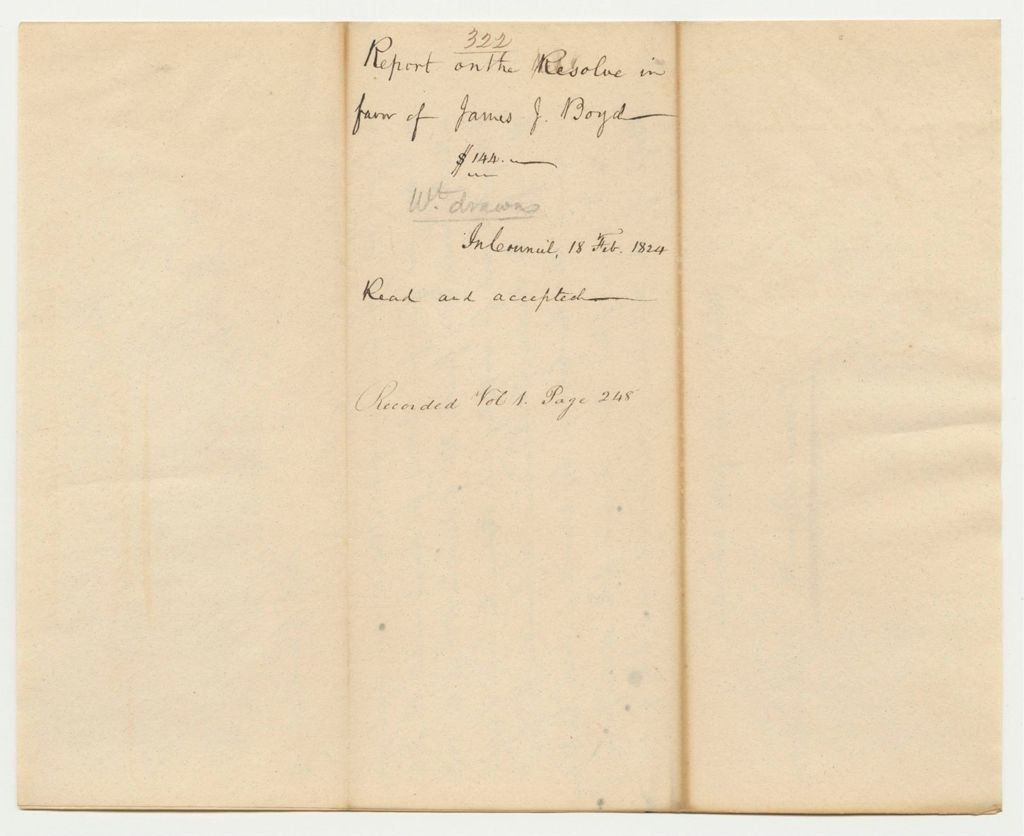 322
Report on the Resolve in
favor of James J. Boyd
$144.
Wt. drawn
In Council, 18 Feb. 1824
Read and accepted
Recorded Vol 1. Page 248